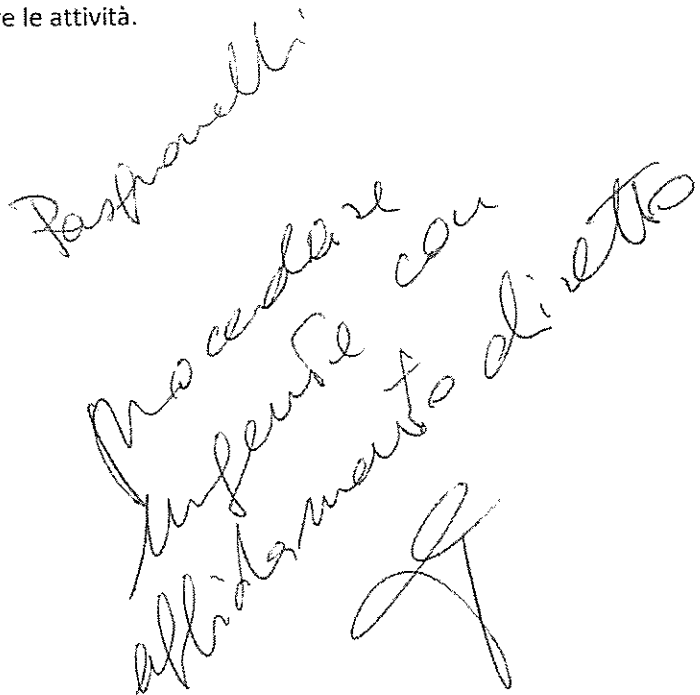 e le attività.
Pasquanelli
Procedere
urgente con
affidamento diretto